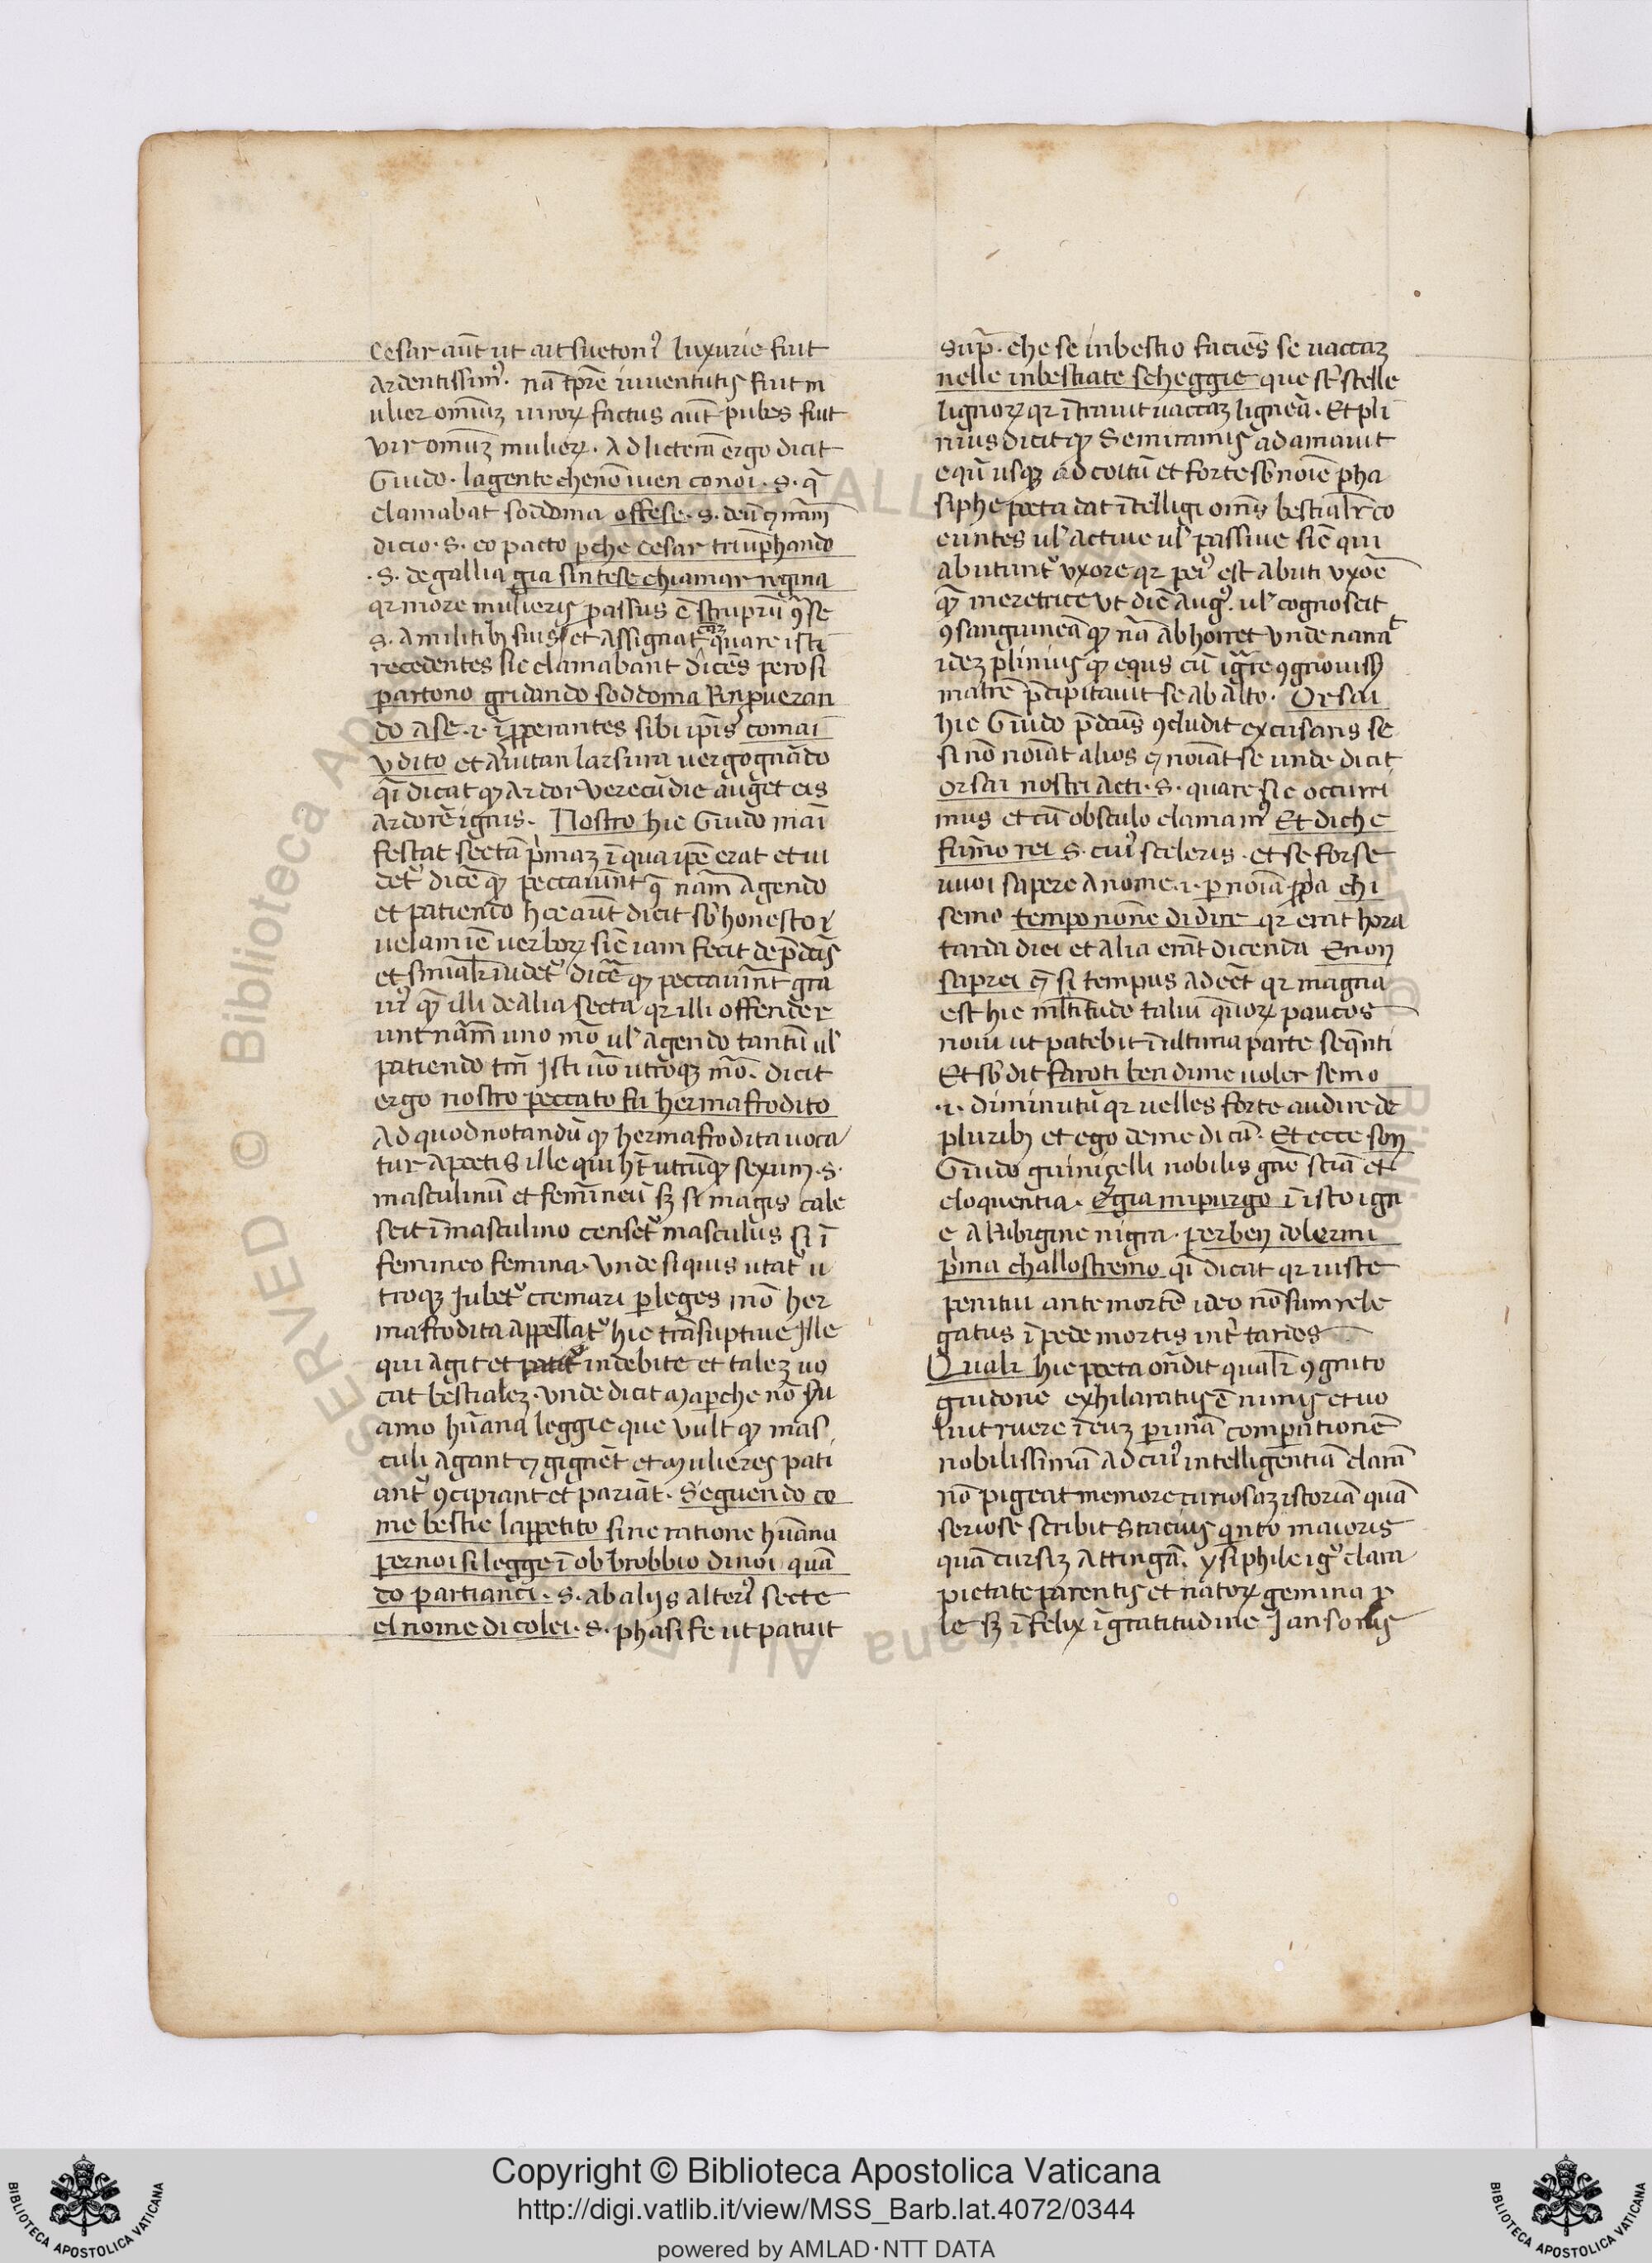 Cesar aūt ut ait suetonꝰ luxurie fuit
ardentissimꝰ. nā tp̄re iuuentutis fuit m
ulier omniūz uiroꝝ factus aūt pubes fuit
vir omniūz mulieꝝ. Ad licterā ergo dicit
Guido. la gente che nō uien co noi. s. q̄
clamabat soddoma offese. s. deū ꝫ nām
dicio. s. eo pacto ꝑche Cesar triunphando
.s. de gallia gia sintese chiamar regina
qr more mulieris passus ē struprū ꝯ se
s. a militibꝫ suis et assignat cāz quare isti
recedentes sic clamabant dicēs pero si
partono gridando soddoma Rinproueran
do a se .i. īproperantes sibi ip̄is comai
vdito et aiutan larsura uergognādo
q̄i dicat ꝙ ardor verecūdie auget eis
ardorē ignis. Nostro hic Guido mani
festat sectā pͥmaz ī qua ip̄e erat et ui
detꝰ dicē ꝙ peccauūnt ꝯ nām agendo
et patiendo hec aūt dicit sb̄ honesto
uelamīe uerboꝝ sic̄ iam fecit de p̄dc̄is
et similr̄ uidetꝰ dicē ꝙ peccauīnt gra
uiꝰ qͣꝫ illi de alia secta qr illi offender
unt nām uno mō ul' agendo tantū ul'
patiendo tm̄ Isti uō utroqꝫ mō. dicit
ergo nostro peccato fu hermafrodito
Ad quod notandū ꝙ hermafrodita uoca
tur a poetis ille qui ht̄ utrūqꝫ sexum .s.
masculinū et feminēū sꝫ si magis cale
scit ī masculino censetꝰ masculus si ī
femineo femina. vnde si quis utatꝰ u
troqꝫ Iubetꝰ cremari ꝑ leges mō her
mafrodita appellatꝰ hic trāsuptiue Ille
qui agit et patitꝰ indebite et talez uo
cat bestialez. vnde dicit ma ꝑche nō su
amo hūana leggie que vult ꝙ mas
culi agant ꝫ gignēt et mulieres pati
antꝰ ꝯcipiant et pariāt. Seguendo co
me bestie lappetito sine ratione hūana
per noi si legge ī obbrobbio di noi quā
do partianci. s. ab aliis alteriꝰ secte
el nome di colei. s. phasife ut patuit
sup̄. che se inbestio faciēs se uaccaz
nelle inbestiate scheggie que st̄ stelle
lignoꝝ qr ītrauit uaccaz ligneā. Et pli
nius dicit ꝙ Semiramis adamauit
equū usqꝫ ad coitū et forte sb̄ noīe pha
siphe poeta dat ītelligi om̄s bestialr̄ co
euntes ul' actiue ul' passiue sic̄ qui
abutuntꝰ vxore qr peiꝰ est abuti vxoē
qͣꝫ meretrice vt dic̄ Augꝰ. ul' cognoscit
ꝯsanguineā ꝙ nā abhorret vnde narrat
idez plinius ꝙ equs cū igr̄re ꝯgnouissꝫ
matrē p̄cipitauit se ab alto. Or sai
hic Guido p̄dcūs ꝯcludit excusans se
si nō noīat alios ꝫ noīat se unde dicit
or sai nostri acti. s. quare sic occurri
mus et cū obsculo clamamꝰ Et di che
fūmo rei s. cuiꝰ sceleris. et se forse
uuoi sapere a nome .i. ꝑ noīa ꝓp̄a chi
semo tempo none di dire qr erat hora
tarda diei et alia erāt dicenda E non
saprei ꝫ si tempus adeēt qr magna
est hic mltitude taliu quoꝝ paucos
noui ut patebit ī ultima parte seq̄nti
Et sb̄dit faroti ben di me uoler semo
.i. diminutū qr uelles forte audire de
pluribꝫ et ego de me dicā. Et ecce son
Guido guinizelli nobilis gn̄e sciā et
eloquentia. E gia mi purgo ī isto ign
e a Rubigine nigra. per ben dolermi
pͥma challostremo q̄i dicat qr iuste
penitui ante mortē ideo nō sum rele
gatus ī pede mortis int̄ tardes
Qualr̄ hic poeta on̄dit qualr̄ ꝯgnito
guidone exhilaratus ē nimis et uo
luit ruere ī euz ꝑ pͥmā comparationē
nobilissimā Ad cuiꝰ intelligentiā clarā
nō pigeat memorē curiosaz istoriā quā
seriose scribit Stacius qͥnto maioris
quā cursiz attingā. ysiphile igꝰ clara
pietate parentis et natoꝝ gemina p
le sꝫ ī felix īgratitudine Iansonis
Copyright © Biblioteca Apostolica Vaticana
http://digi.vatlib.it/view/MSS_Barb.lat.4072/0344
powered by AMLAD·NTT DATA